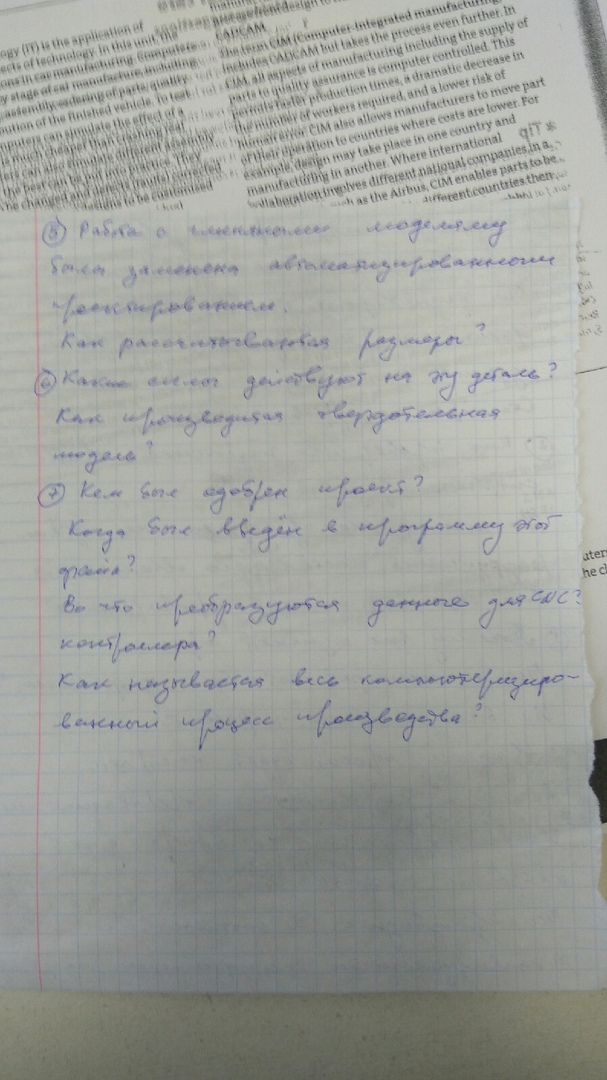 ogy (IT) is the application of
ects of technology. In this unit, the
in car manufacturing. Computers
stage of car manufacture, including
ordering of parts, quality
ution of the finished vehicle. To test
mputers can simulate the effect of a
is much cheaper than crashing real
can also simulate different assembly
CAD/CAM.
The term CIM (Computer-Integrated manufacturing)
includes CAD/CAM but takes the process even further. In
CIM, all aspects of manufacturing including the supply of
parts to quality assurance is computer controlled. This
permits faster production times, a dramatic decrease in
the number of workers required, and a lower risk of
human error. CIM also allows manufacturers to move part
of their operation to countries where costs are lower. For
example, design may take place in one country and
manufacturing in another. Where international
collaboration involves different national companies, in a
such as the Airbus, CIM enables parts to be
different countries then
5 Работа с глиняными моделями
была заменена автоматизированным
проектированием.
Как рассчитываются размеры?
6 Какие силы действуют на эту деталь?
Как производится твердотельная
модель?
7 Кем был одобрен проект?
Когда был введён в программу этот
файл?
Во что преобразуются данные для CNC?
контроллера?
Как называется весь компьютеризиро-
ванный процесс производства?